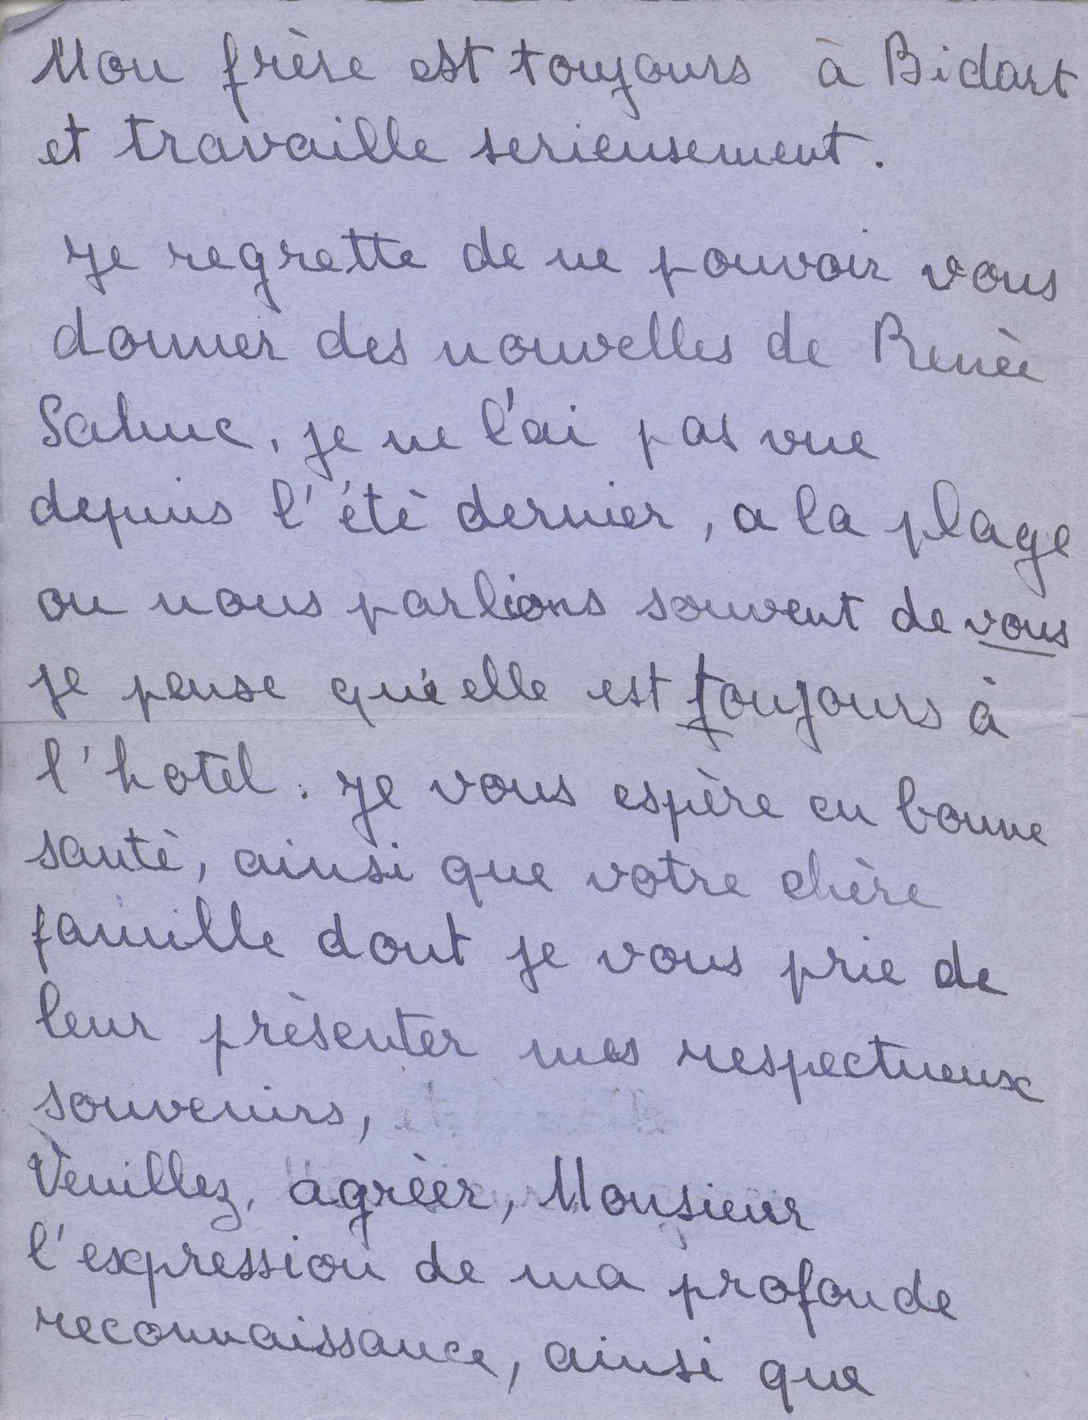 Mon frère est toujours à Bidart
et travaille serieusement.
Je regrette de ne pouvoir vous
donner des nouvelles de Renèe
je ne l'ai pas vue
depuis l'étè dernier, a la plage
ou nous parlions souvent de vous
je pense qu'elle est toujours à
l'hotel. Je vous espère en bonne
santè, ainsi que votre chère
famille dont je vous prie de
leur prèsenter mes respectueux
souvenirs,
Veuillez, agrèer, Monsieur
l'expression de ma profonde
reconnaissance, ainsi que